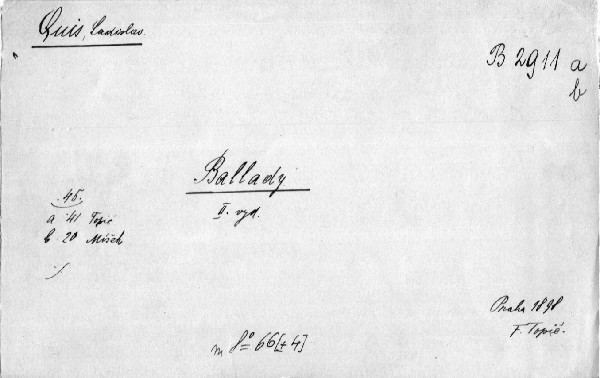 Quis, Ladislav.
B 2911 a
b
Ballady
II. vyd.
45.
a 41 Topič
b. 20 Míšek
Praha 1898
F. Topič.
m 8° 66[+4]